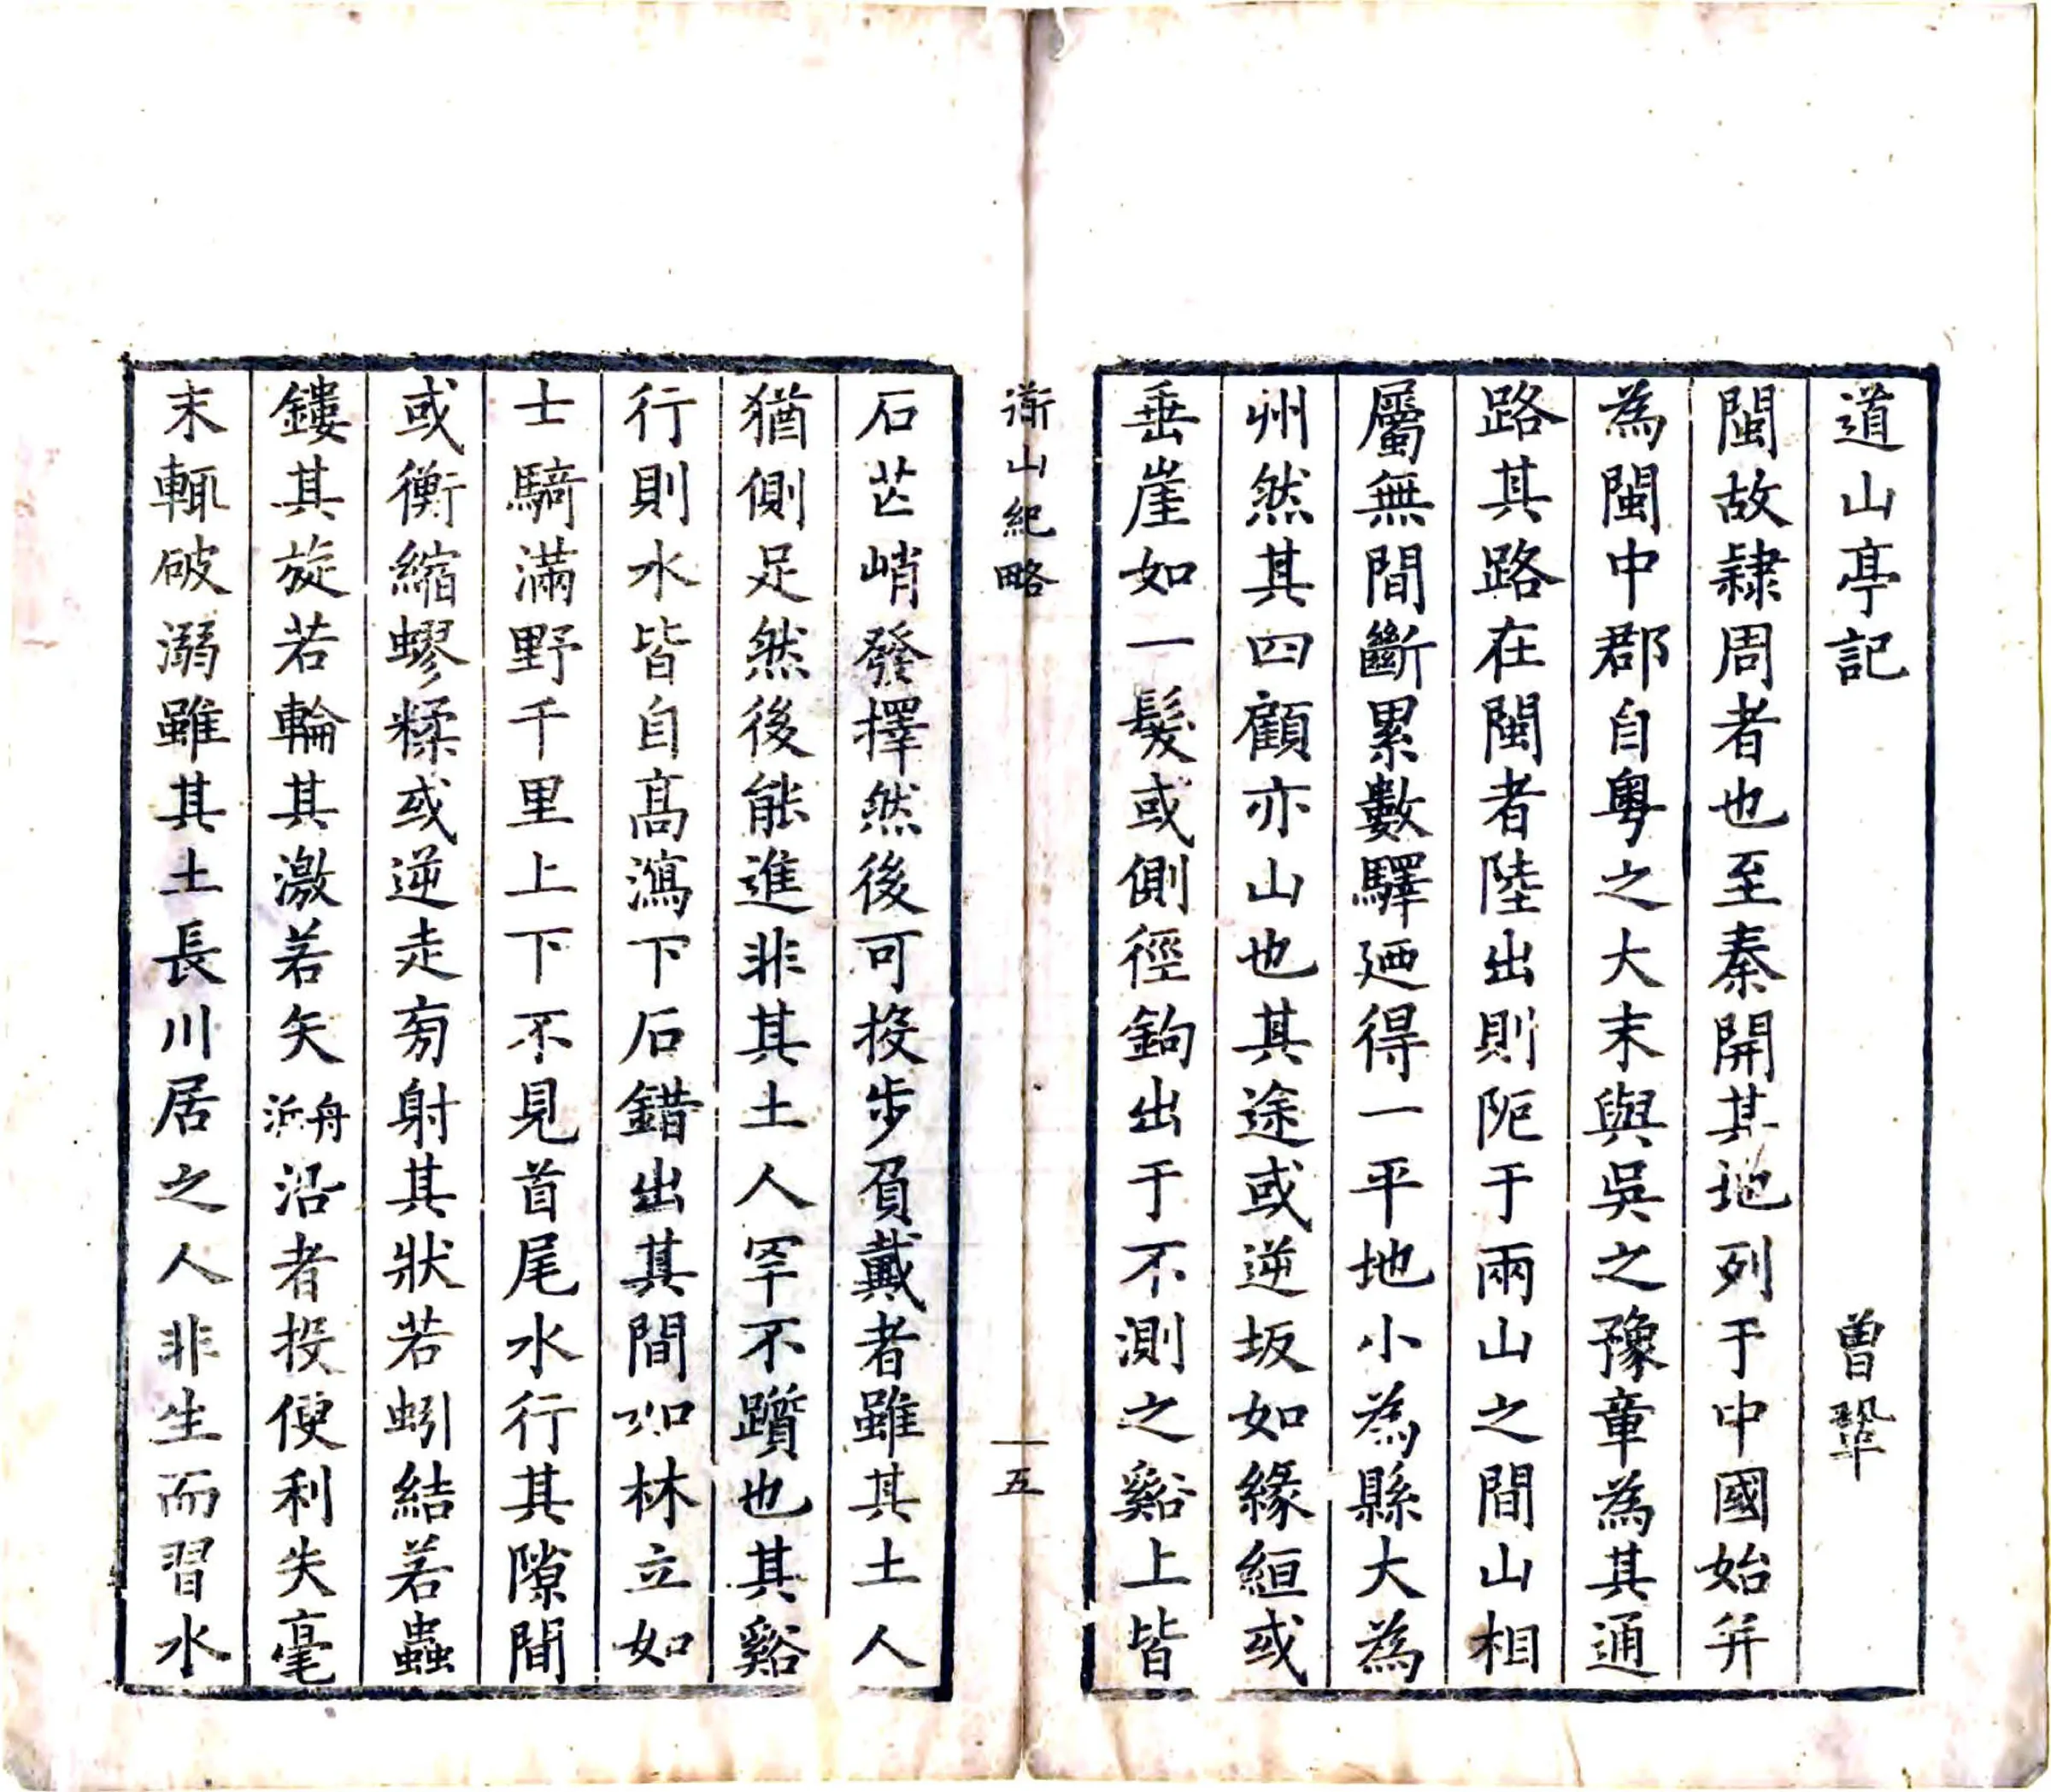 道山亭記 曾鞏
閩故隸周者也至秦開其地列于中國始并
為閩中郡自粵之大末與吳之豫章為其通
路其路在閩者陸出則阨于兩山之間山相
屬無間斷累數驛廼得一平地小為縣大為
州然其四顧亦山也其途或逆坂如緣絙或
垂崖如一髮或側徑鉤出于不測之谿上皆
衜山紀略 五
石芒峭發擇然後可投步負戴者雖其土人
猶側足然後能進非其土人罕不躓也其谿
行則水皆自高瀉下石錯出其間如林立如
士騎滿野千里上下不見首尾水行其隙間
或衡縮蟉糅或逆走旁射其狀若蚓結若蟲
鏤其旋若輪其激若矢舟泝沿者投便利失毫
末輒破溺雖其土長川居之人非生而習水